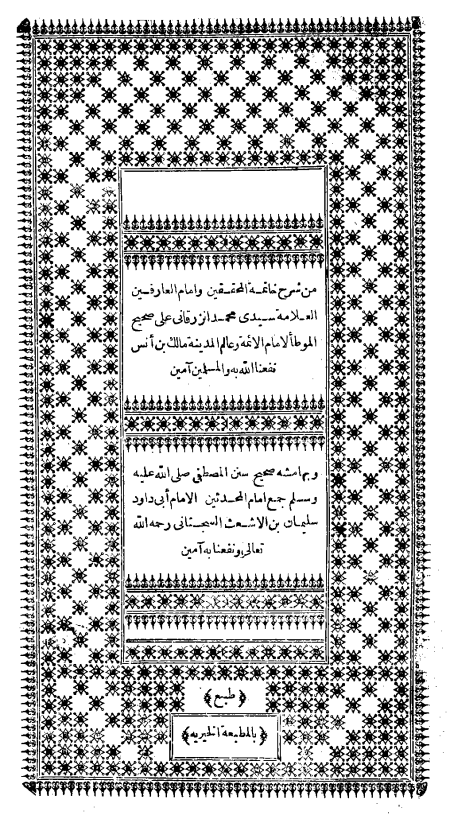 من شرح خاتمة المحققين وامام العارفين
العلامة سيدى محمد الزرقانى على صحيح
الموطأ لامام الائمة وعالم المدينة مالك بن أنس
نفعنا الله به والمسلمين آمين
وبهامشه صحيح سنن المصطفى صلى الله عليه
وسلم جمع امام المحدثين الامام أبى داود
سليمان بن الاشعث السجستانى رحمه الله
تعالى ونفعنا به آمين
﴿طبع﴾
﴿بالمطبعة الخيريه﴾